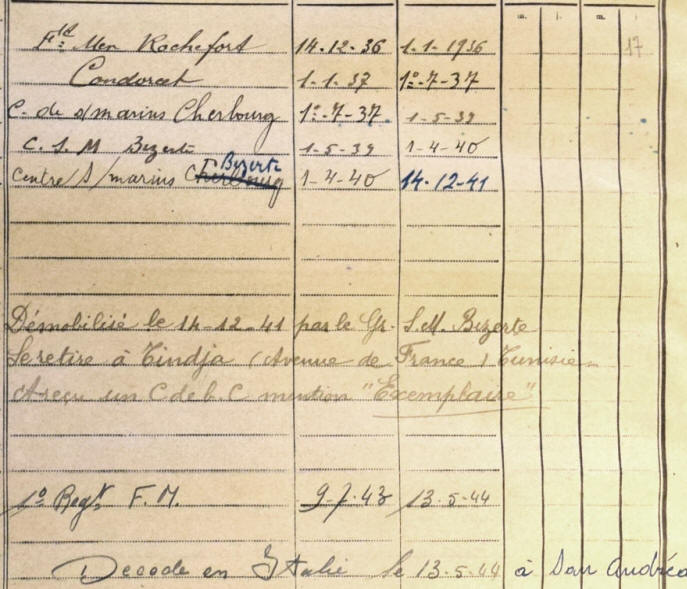 m. j. m. j
Mon Rochefort 14.12.36 1.1.1936 17
Condorcet 1-1-37 1º-7-37
C. de s/marins Cherbourg 1º-7-37 1-5-39
C. S. M Bizerte 1-5-39 1-4-40
Bizerte
Centre S/marins Cherbourg 1-4-40 14-12-41
Démobilisé le 14-12-41 par le Gr. S.M. Bizerte
Se retire à Tindja (Avenue de France) Tunisie
A reçu un C de b. C mention "Exemplaire"
1º Regt F. M. 9-7-43 13-5-44
Decede en Italie le 13-5-44 à San Andréa